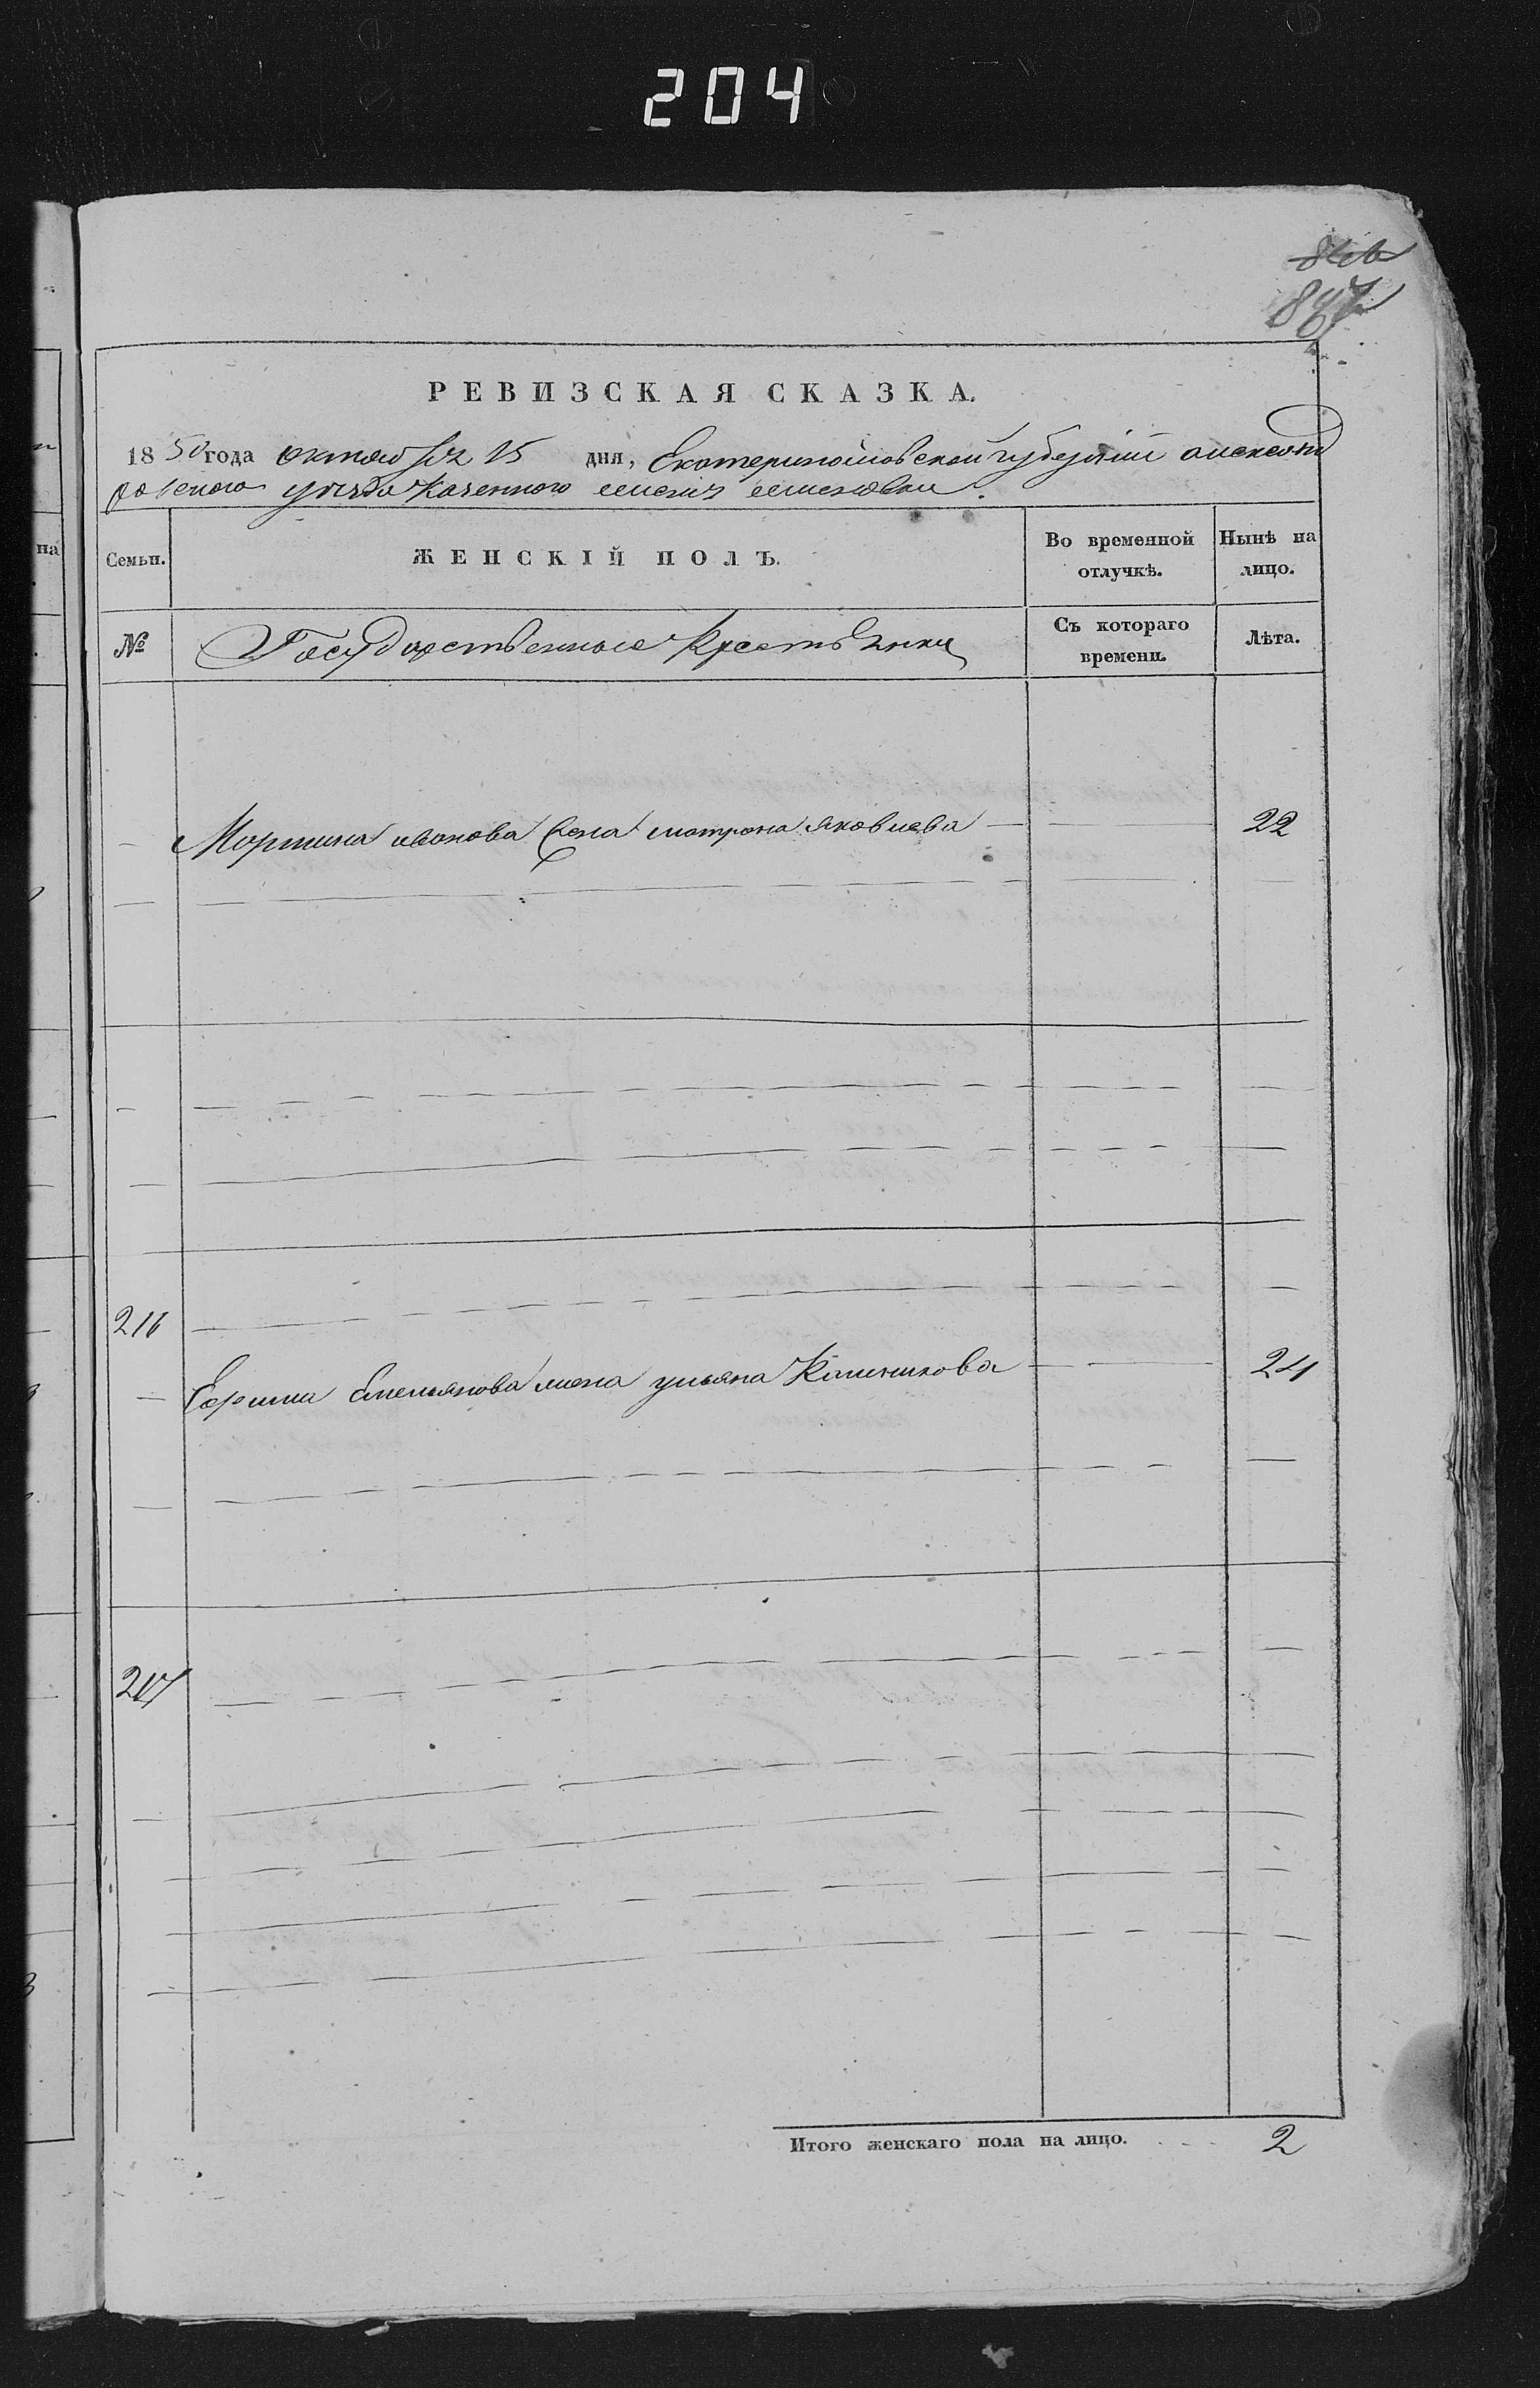 204
847
РЕВИЗСКАЯ СКАЗКА.
1850 года октября 15 дня, Екатеринославской губернии александ
ровского уезда казенного селения
Семьи. ЖЕНСКІЙ ПОЛЪ. Во временной отлучкѣ. Нынѣ на лицо.
№ Государственные Крестьянки Съ котораго времени. Лѣта.
Мартина иванова жена матрона яковлева 22
216
Емельянова жена ульяна Калиникова 24
217
Итого женскаго пола на лицо. 2